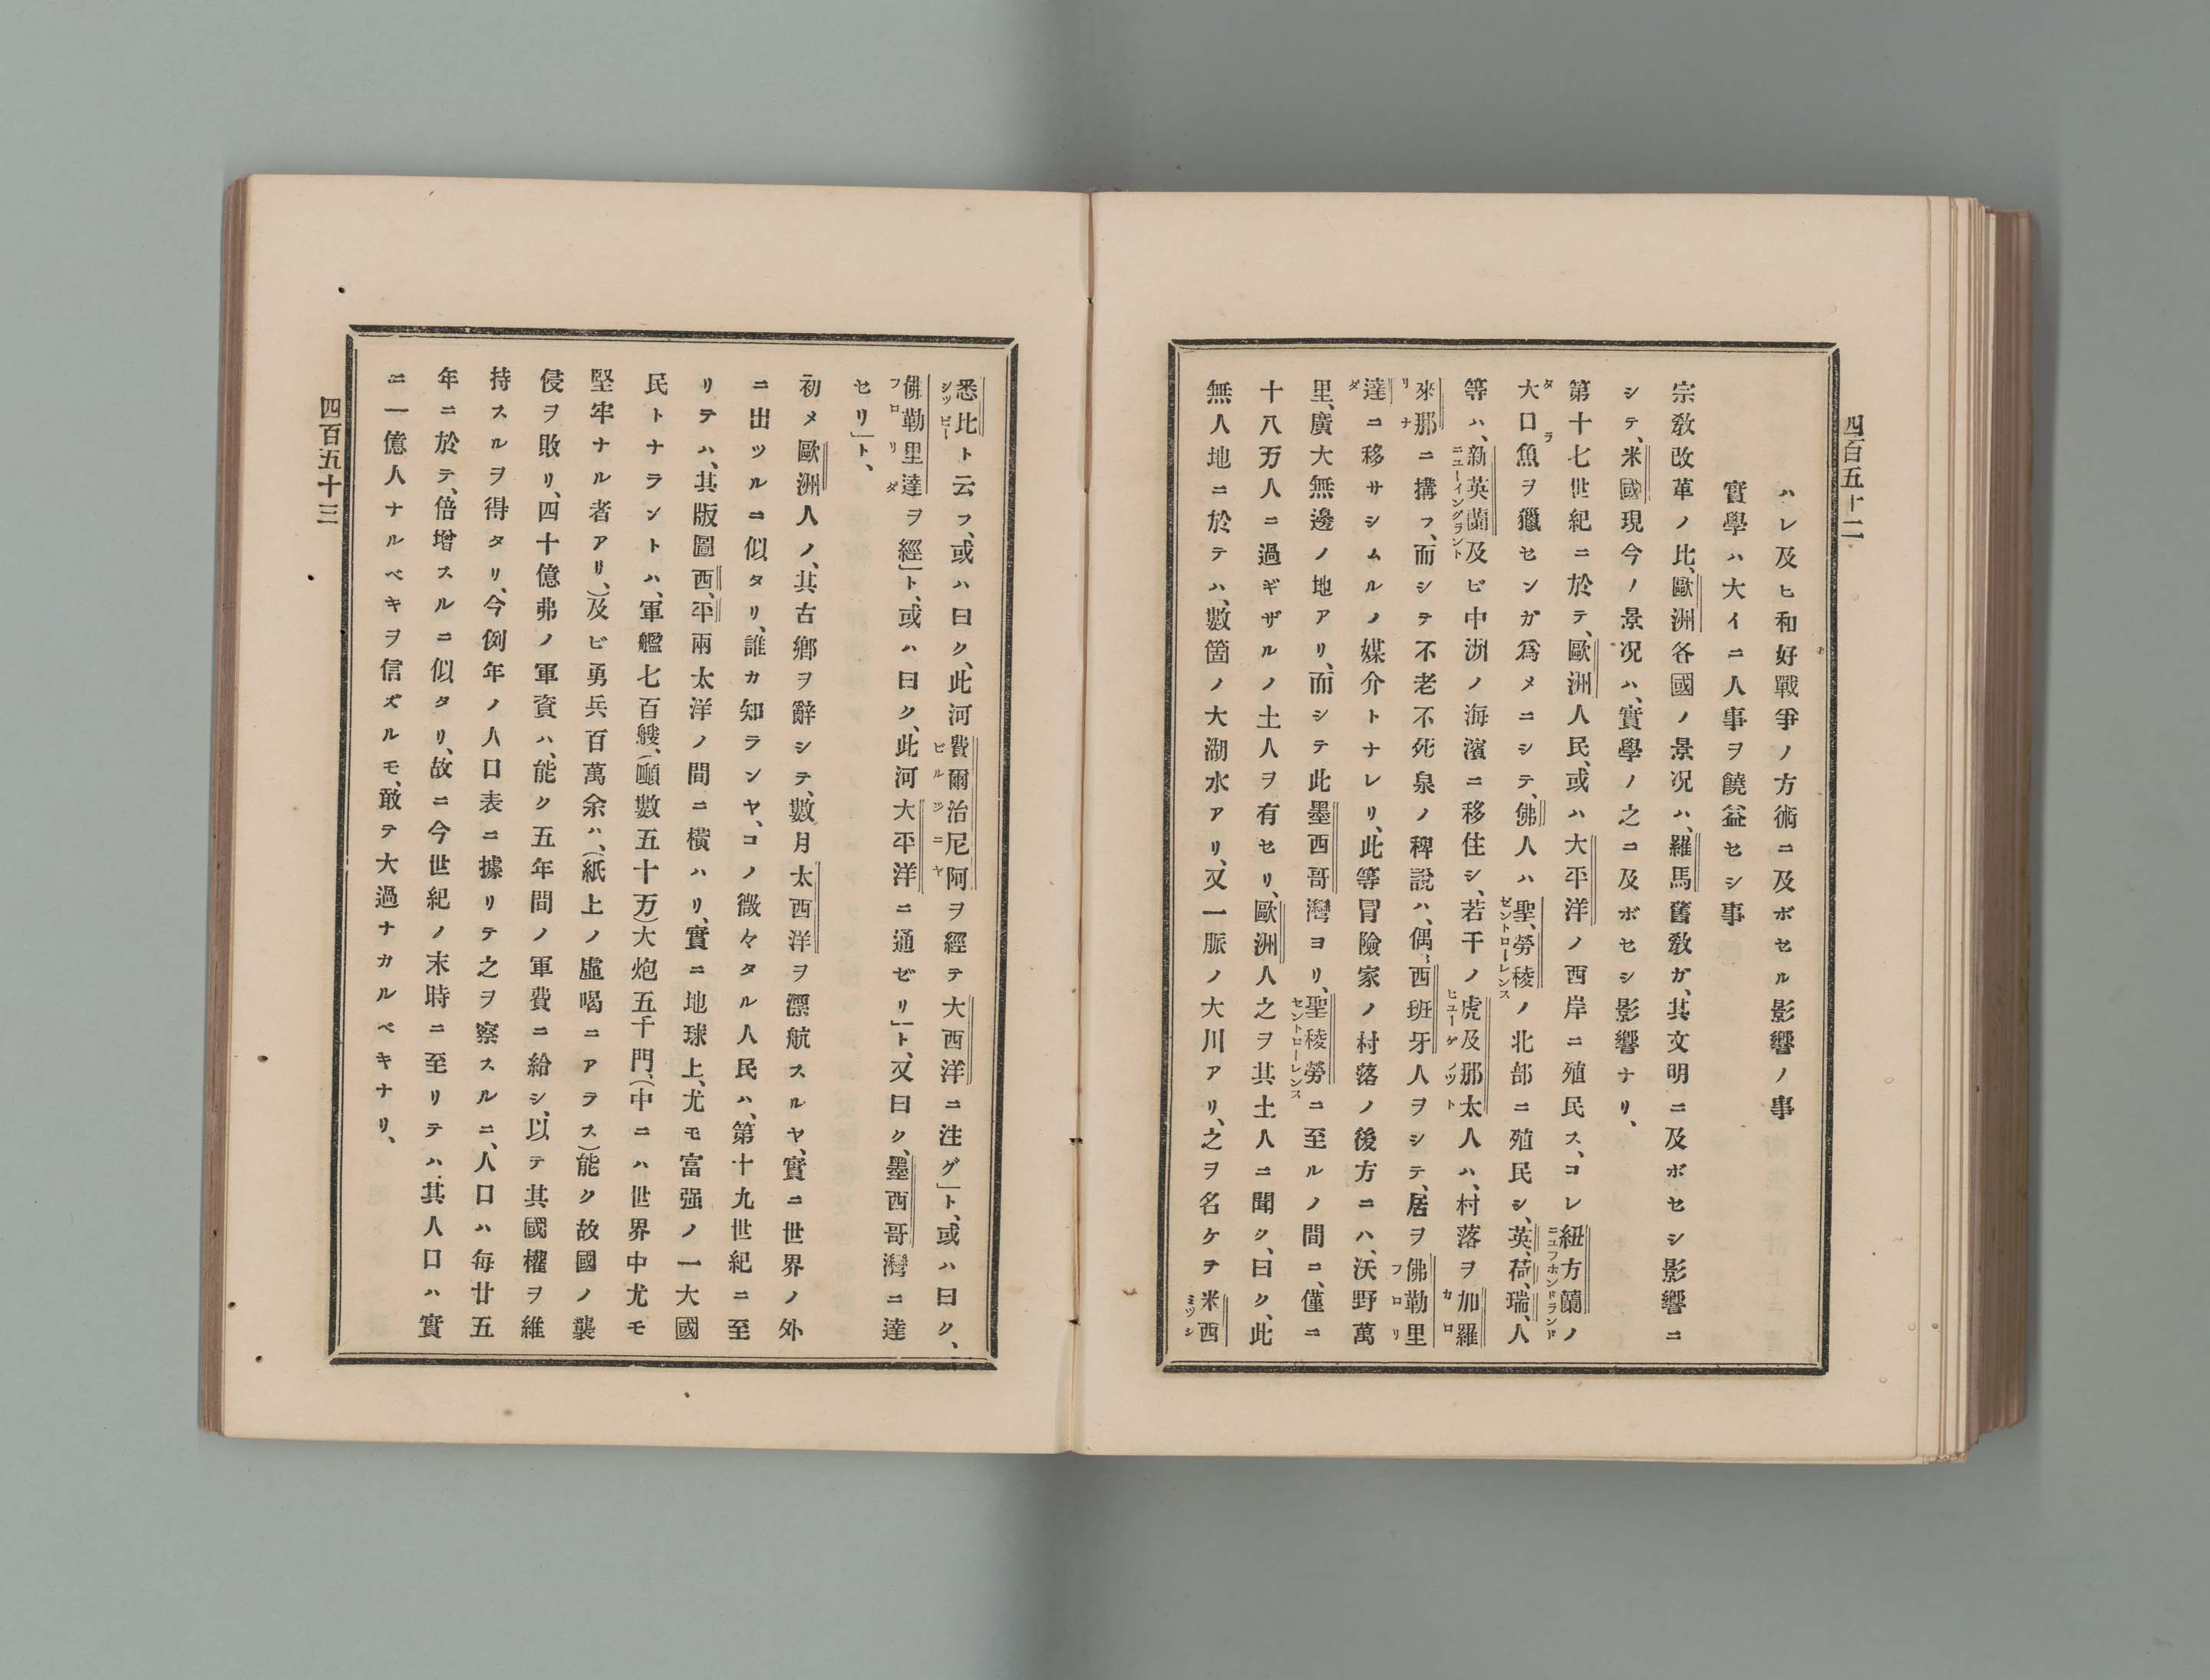 四百五十二
ハレ及ヒ和好戰爭ノ方術ニ及ボセル影響ノ事
實學ハ大イニ人事ヲ饒益セシ事
宗教改革ノ比、歐洲各國ノ景况ハ、羅馬舊教ガ、其文明ニ及ボセシ影響ニ
シテ、米國現今ノ景况ハ、實學ノ之ニ及ボセシ影響ナリ、
第十七世紀ニ於テ、歐洲人民、或ハ大平洋ノ西岸ニ殖民ス、コレ紐方蘭ノ
大口魚ヲ獵センガ爲メニシテ、佛人ハ聖勞稜ノ北部ニ殖民シ、英、荷、瑞、人
等ハ、新英蘭及ビ中洲ノ海濱ニ移住シ、若干ノ虎及那太人ハ、村落ヲ加羅
來那ニ搆フ、而シテ不老不死泉ノ稗說ハ、偶、西班牙人ヲシテ、居ヲ佛勒里
達ニ移サシムルノ媒介トナレリ、此等冒險家ノ村落ノ後方ニハ、沃野萬
里、廣大無邊ノ地アリ、而シテ此墨西哥灣ヨリ、聖稜勞ニ至ルノ間ニ、僅ニ
十八万人ニ過ギザルノ土人ヲ有セリ、歐洲人之ヲ其土人ニ聞ク、曰ク、此
無人地ニ於テハ、數箇ノ大湖水アリ、又一脈ノ大川アリ、之ヲ名ケテ米西
悉比ト云フ、或ハ曰ク、此河費爾治尼阿ヲ經テ大西洋ニ注グ」ト、或ハ曰ク、
佛勒里達ヲ經」ト、或ハ曰ク、此河大平洋ニ通ゼリ」ト、又曰ク、墨西哥灣ニ達
セリ」ト、
初メ歐洲人ノ、其古鄉ヲ辭シテ、數月太西洋ヲ漂航スルヤ、實ニ世界ノ外
ニ出ツルニ似タリ、誰カ知ランヤ、コノ微々タル人民ハ、第十九世紀ニ至
リテハ、其版圖西、平兩太洋ノ間ニ横ハリ、實ニ地球上、尤モ富强ノ一大國
民トナラントハ、軍艦七百艘、(噸數五十万)大炮五千門、(中ニハ世界中尤モ
堅牢ナル者アリ、)及ビ勇兵百萬余ハ、(紙上ノ虛喝ニアラス)能ク故國ノ襲
侵ヲ敗リ、四十億弗ノ軍資ハ、能ク五年間ノ軍費ニ給シ、以テ其國權ヲ維
持スルヲ得タリ、今例年ノ人口表ニ據リテ之ヲ察スルニ、人口ハ每廿五
年ニ於テ、倍增スルニ似タリ、故ニ今世紀ノ末時ニ至リテハ、其人口ハ實
ニ一億人ナルベキヲ信ズルモ、敢テ大過ナカルベキナリ、
四百五十三